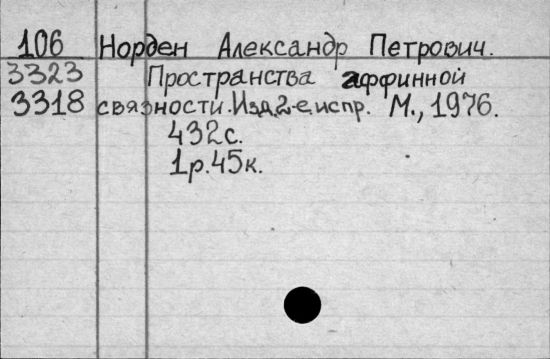 106 Норден Александр Петрович.
3323 Пространства аффинной
3318 связности. Изд. 2-е, испр. М., 1976.
432 с.
1р. 45к.